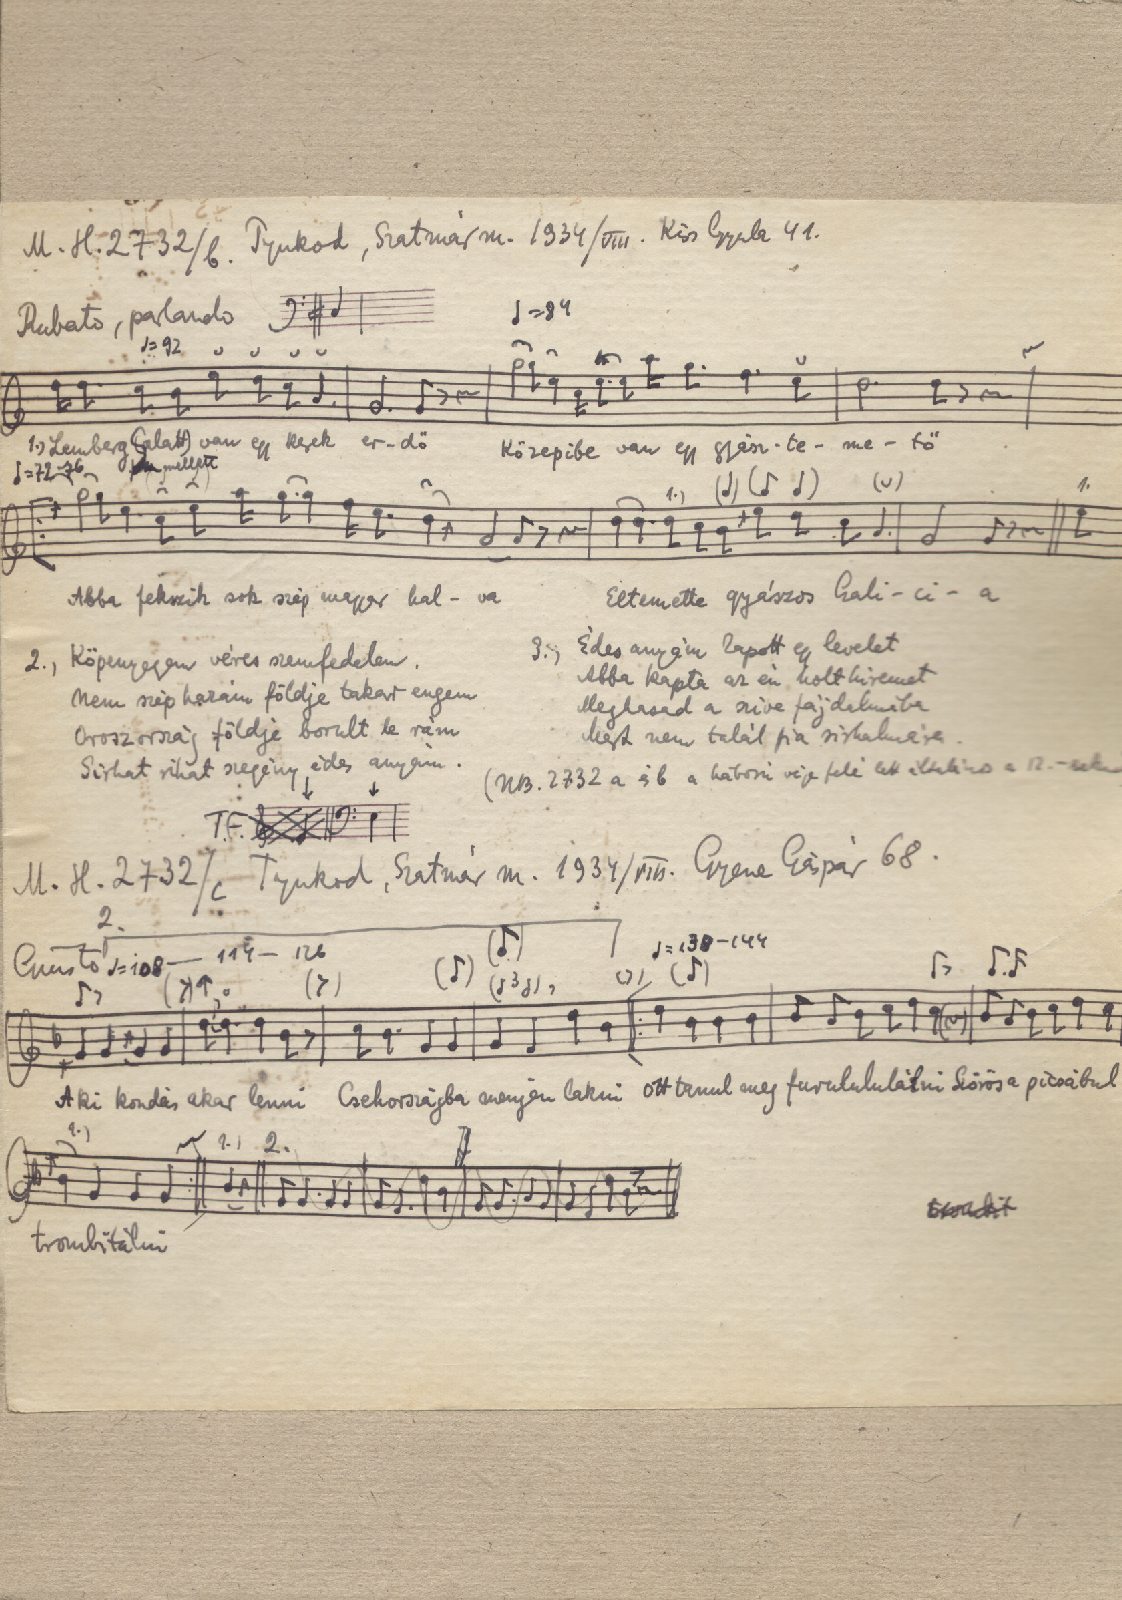 M. H. 2732/b. Tyukod, Szatmár m. 1934/VIII. Kiss Gyula 41.
Rubato, parlando
♩=84
♩=92
1.) Lemberg (alatt) van egy kerek er-dő Közepibe van egy gyász-te-me-tő
♩=72-76 mellett
1.) 1.
Abba fekszik sok szép magyar hal-va Eltemette gyászos Gali-ci-a
2., Köpenyegem véres szemfedelem.
Nem szép hazám földje takar engem
Oroszország földje borult le rám
Sirhat rihat szegény édes anyám.
3., Édes anyám kapott egy levelet
Abba kapta az én holt hiremet
Meghasad a szive fájdalmába
Mert nem talál fia sirhalmára.
(NB. 2732 a és b a háború vége felé lett általános a 12.
T.F.
M. H. 2732/c Tyukod, Szatmár m. 1934/VIII. Gyene Gáspár 68.
2.
Giusto ♩=108— 114— 126
♩=138-144
Aki kondás akar lenni Csehországba menjén lakni ott tanul meg furulululálni Szőrös a picsábul
1.) 1.) 2.
trombitálni